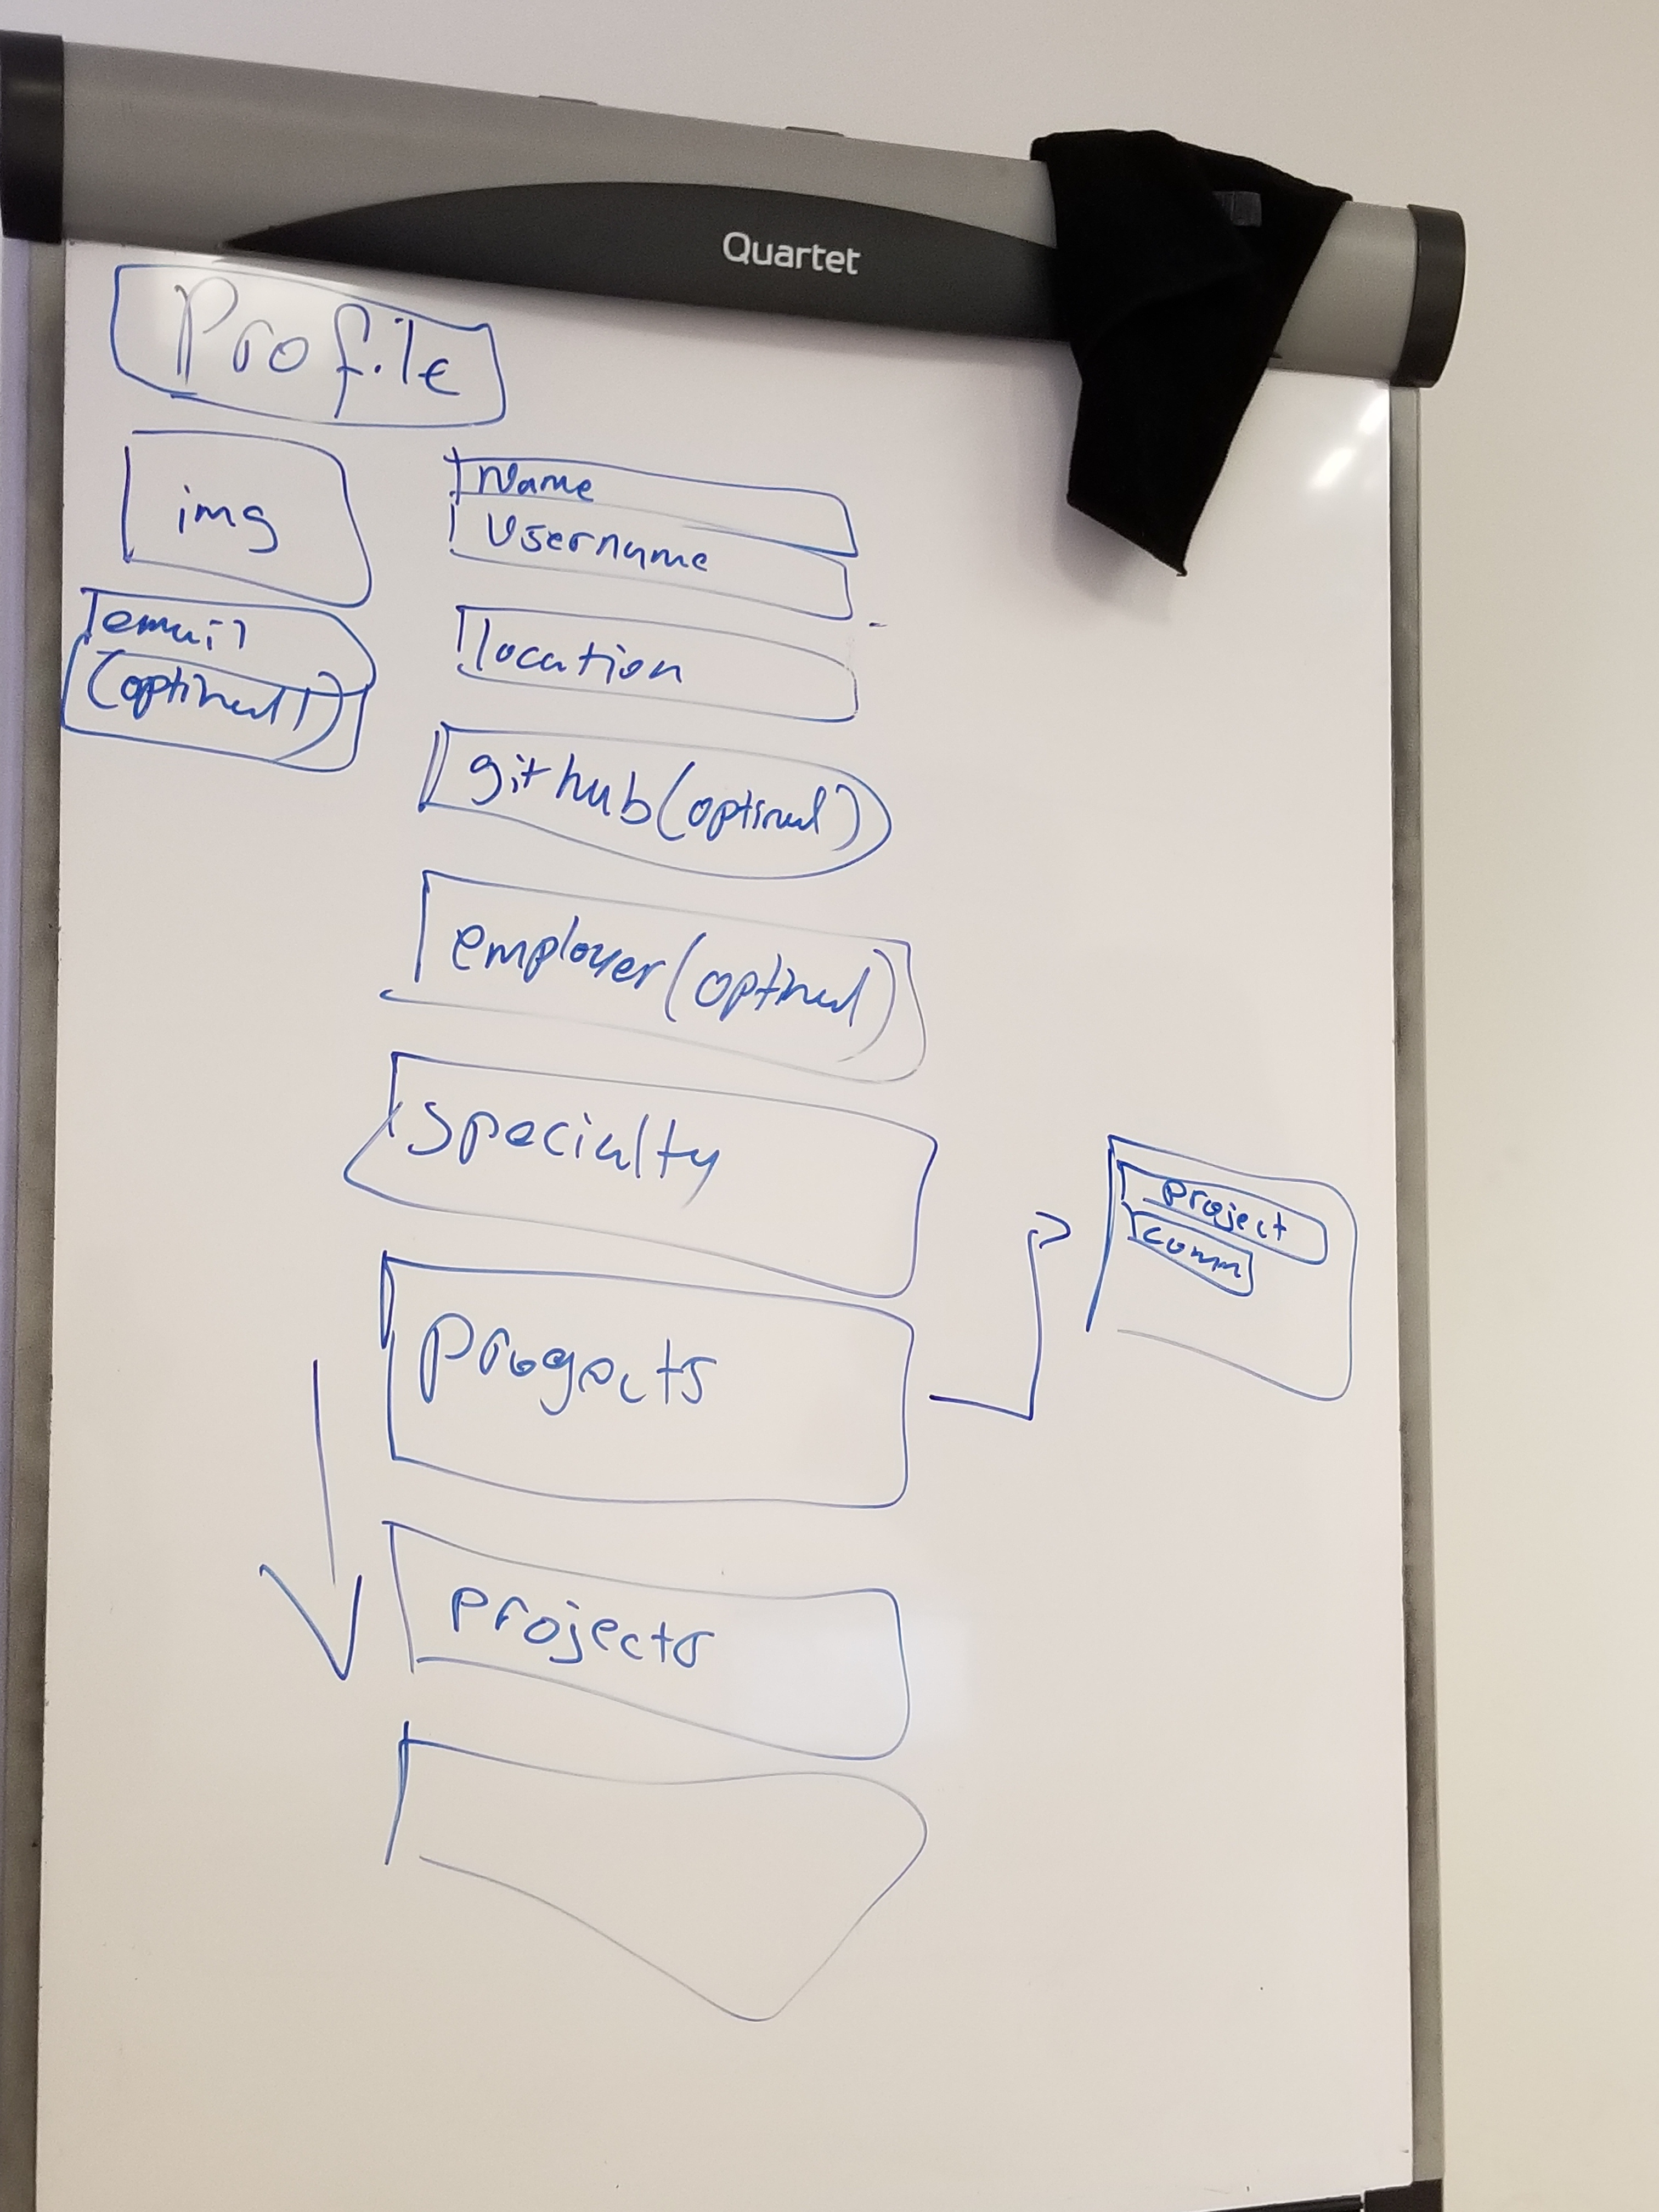 Quartet
Profile
img
email
(optinal)
Name
Username
location
github (optinal)
employer (optinal)
specialty
progects
project
comm
projects